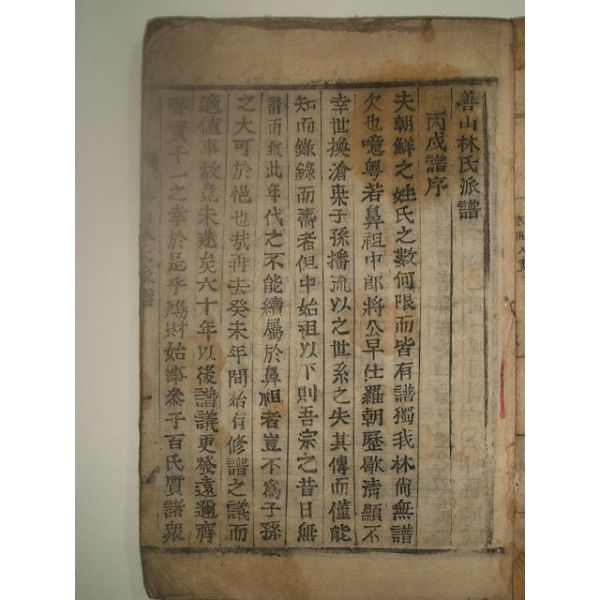 善山林氏派譜
丙戌譜序
夫朝鮮之姓氏之數何限而皆有譜獨我林尙無譜
欠也噫粤若鼻祖中郎將公早仕羅朝歷歇淸顯不
幸世換滄桒子孫播流以之世系之失其傳而僅能
知而錄錄而壽者但中始祖以下則吾宗之昔日無
譜而致此年代之不能續屬於鼻祖者豈不爲子孫
之大可於悒也哉再去癸未年間始有修譜之議而
適値事故竟未遂矣六十年以後譜議更發遠邇齊
聲實千一之幸於是乎鳩財始事叅予百氏質諸衆
氏派譜